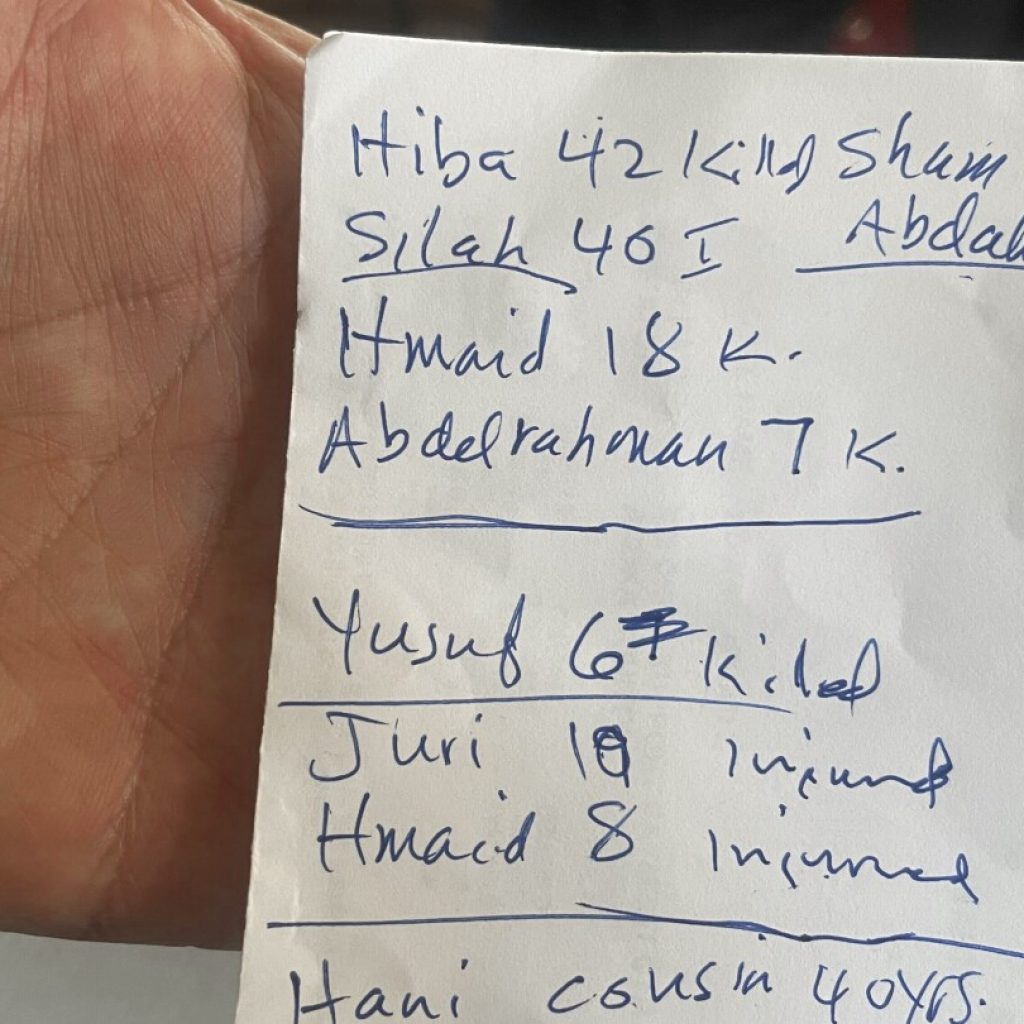 Hiba 42 Killed Sham
Silah 40 I Abdal
Hmaid 18 K.
Abdelrahman 7 K.
Yusuf 6 Killed
Juri injured
Hmaid 8 injured
Hani cousin 40yrs.